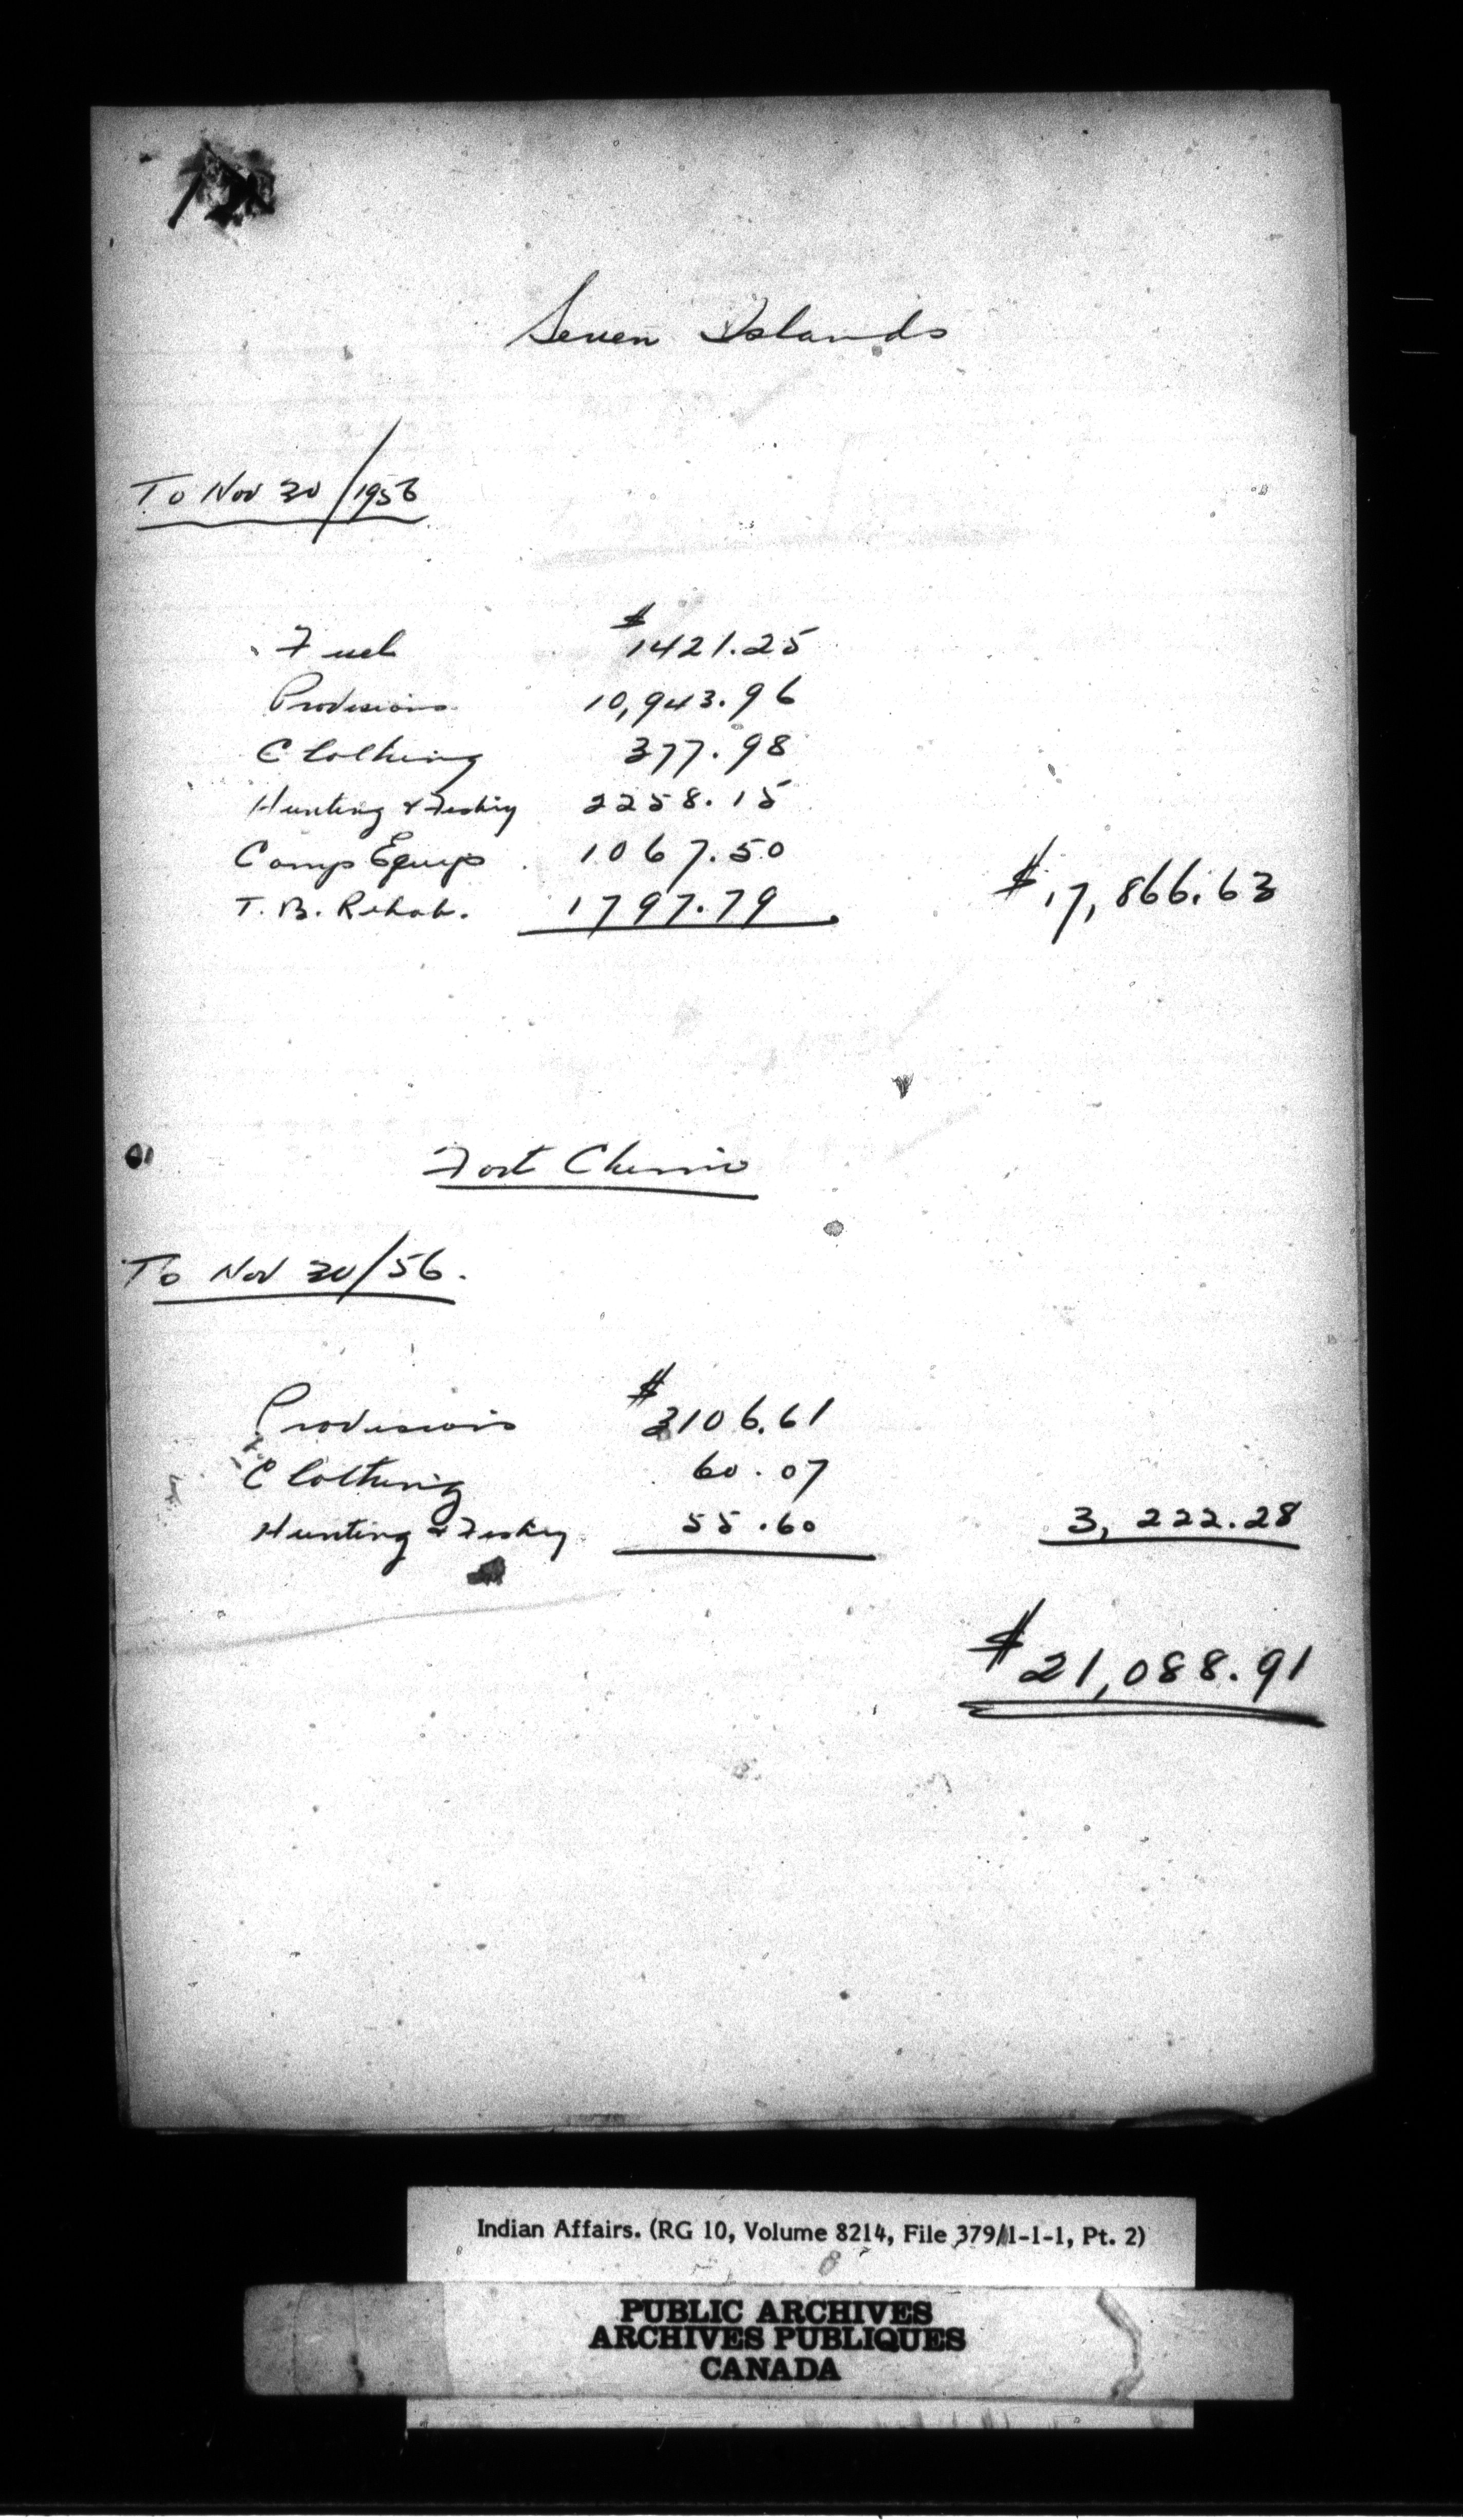 Seven Islands
To Nov 30/1956
Fuel $1421.25
Provisions 10,943.96
Clothing 377.98
Hunting & Fishing 2258.15
Camp Equip 1067.50
T.B. Rehab. 1797.79 $17,866.63
Fort Chimo
To Nov 30/56.
Provisions $3106.61
Clothing 60.07
Hunting & Fishing 55.60 3,222.28
$21,088.91
Indian Affairs. (RG 10, Volume 8214, File 379/1-1-1, Pt. 2)
PUBLIC ARCHIVES
ARCHIVES PUBLIQUES
CANADA